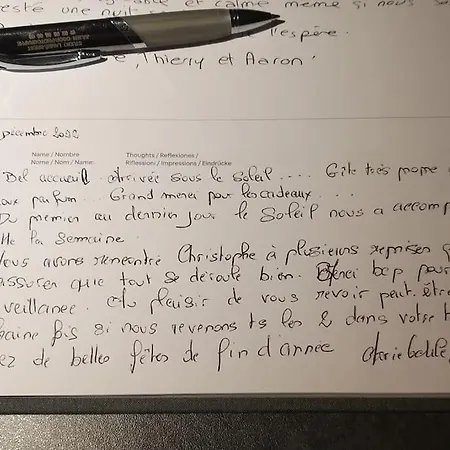 este une nuit et calme même si nous so
l'espère.
, Thierry et Aaron.
STUDIO LIGNE-WEST
décembre 2022
Name / Nombre
Nome / Nom / Name:
Thoughts / Reflexiones /
Riflessioni / Impressions / Eindrücke
Bel accueil. Arrivée sous le soleil .... Gîte très propre
aux parfum... Grand merci pour les cadeaux ...
Du premier au dernier jour le soleil nous a accomp
la semaine.
Nous avons rencontré Christophe à plusieurs reprises
assurer que tout se déroule bien. Merci bcp pour
veillance. Au plaisir de vous revoir peut-être
haine fois si nous revenons ts les 2 dans votre
ez de belles fêtes de fin d'année